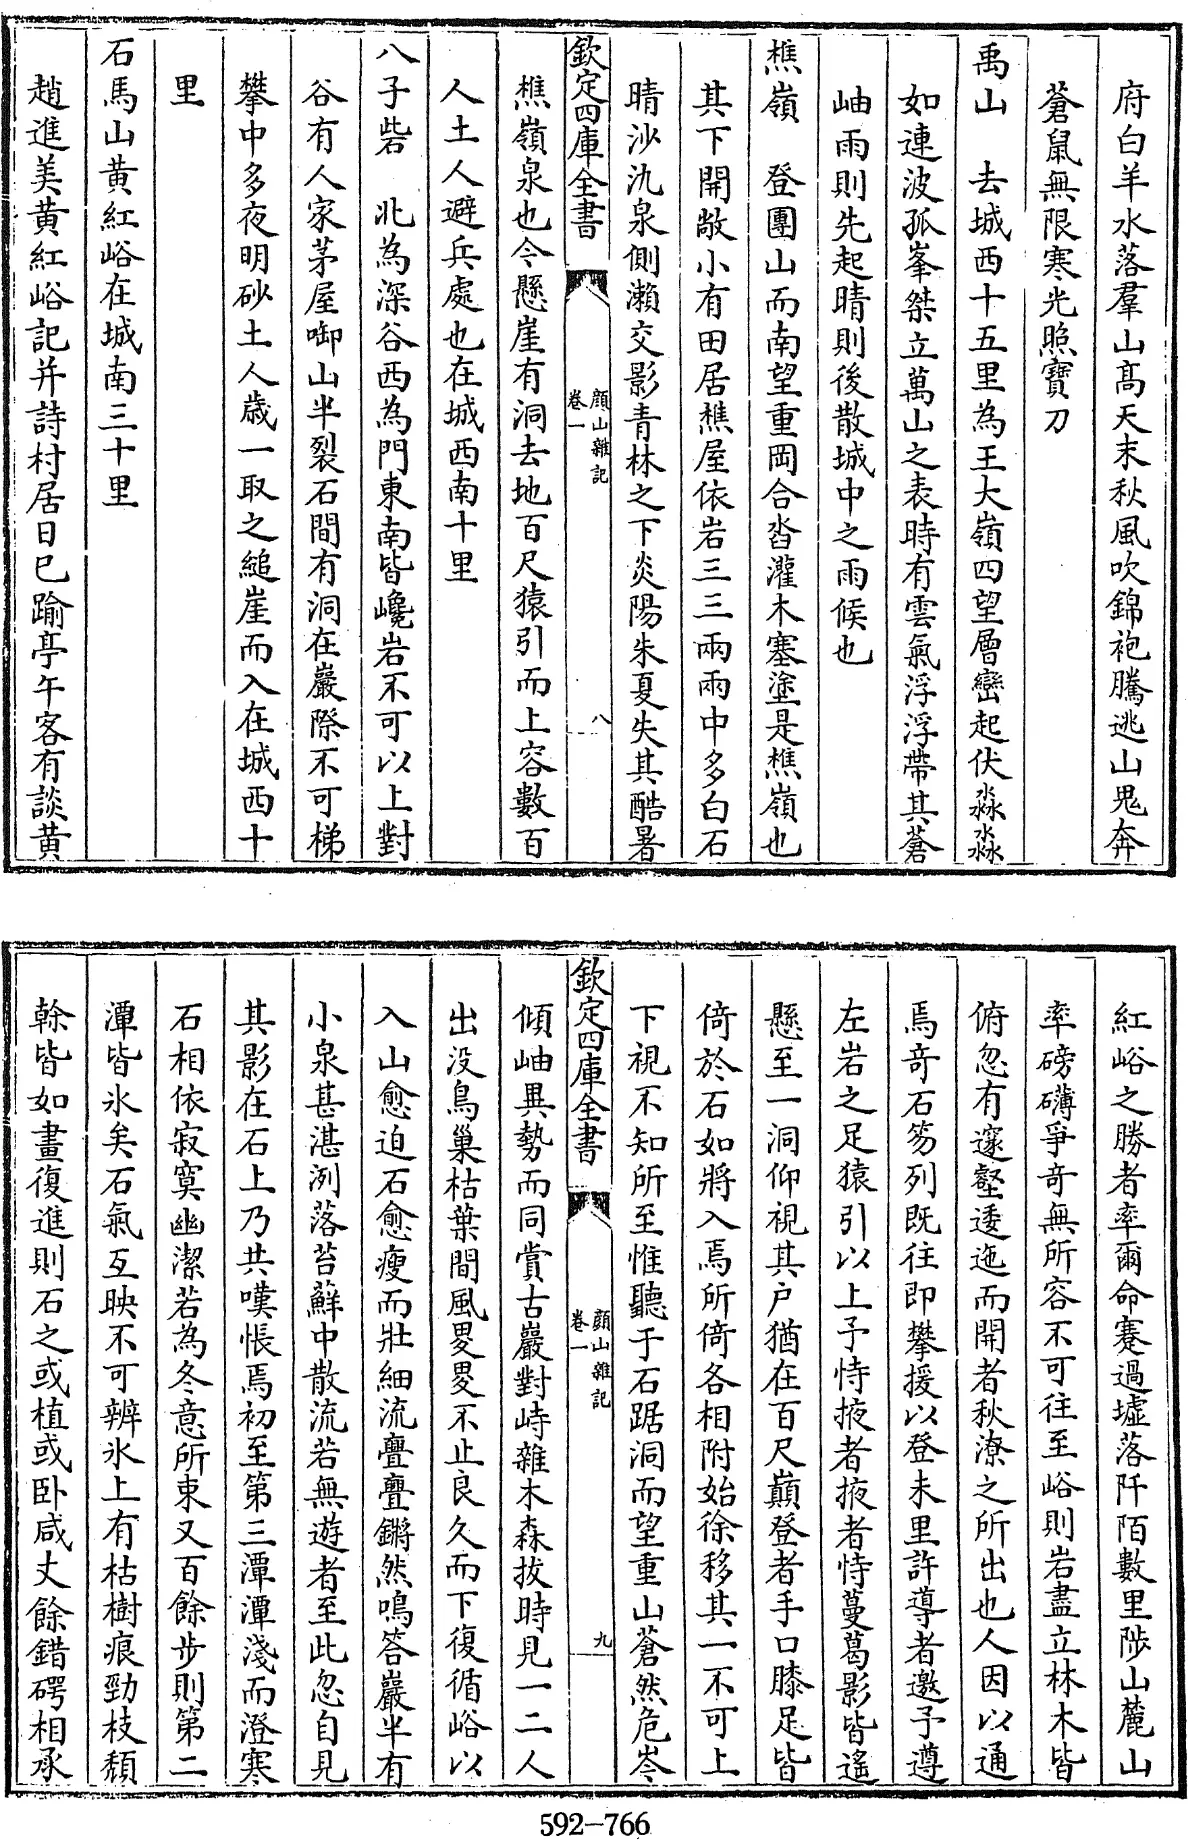 府白羊水落羣山髙天末秋風吹錦袍騰逃山鬼奔
蒼鼠無限寒光照寶刀
禹山　去城西十五里為王大嶺四望層巒起伏淼淼
如連波孤峯桀立萬山之表時有雲氣浮浮帶其蒼
岫雨則先起晴則後散城中之雨候也
樵嶺　登團山而南望重岡合沓灌木塞塗是樵嶺也
其下開敞小有田居樵屋依岩三三兩兩中多白石
晴沙氿泉側瀬交影青林之下炎陽朱夏失其酷暑
欽定四庫全書
顔山雜記
卷一
八
樵嶺泉也令懸崖有洞去地百尺猿引而上容數百
人土人避兵處也在城西南十里
八子砦　北為深谷西為門東南皆巉岩不可以上對
谷有人家茅屋啣山半裂石間有洞在巖際不可梯
攀中多夜明砂土人歲一取之縋崖而入在城西十
里
石馬山黄紅峪在城南三十里
趙進美黄紅峪記并詩村居日已踰亭午客有談黄
紅峪之勝者率爾命蹇過墟落阡陌數里陟山麓山
率磅礴爭奇無所容不可往至峪則岩盡立林木皆
俯忽有邃壑逶迤而開者秋潦之所出也人因以通
焉奇石笏列既往即攀援以登未里許導者邀予遵
左岩之足猿引以上予恃掖者掖者恃蔓葛影皆遙
懸至一洞仰視其户猶在百尺巔登者手口膝足皆
倚於石如將入焉所倚各相附始徐移其一不可上
下視不知所至惟聽于石踞洞而望重山蒼然危岑
欽定四庫全書
顔山雜記
卷一
九
傾岫異勢而同賞古巖對峙雜木森拔時見一二人
出没鳥巢枯葉間風畟畟不止良久而下復循峪以
入山愈迫石愈瘦而壯細流亹亹鏘然鳴答巖半有
小泉甚湛洌落苔蘚中散流若無遊者至此忽自見
其影在石上乃共嘆悵焉初至第三潭潭淺而澄寒
石相依寂寞幽潔若為冬意所束又百餘步則第二
潭皆氷矣石氣互映不可辨氷上有枯樹痕勁枝頽
榦皆如畫復進則石之或植或卧咸丈餘錯碍相承
592-766